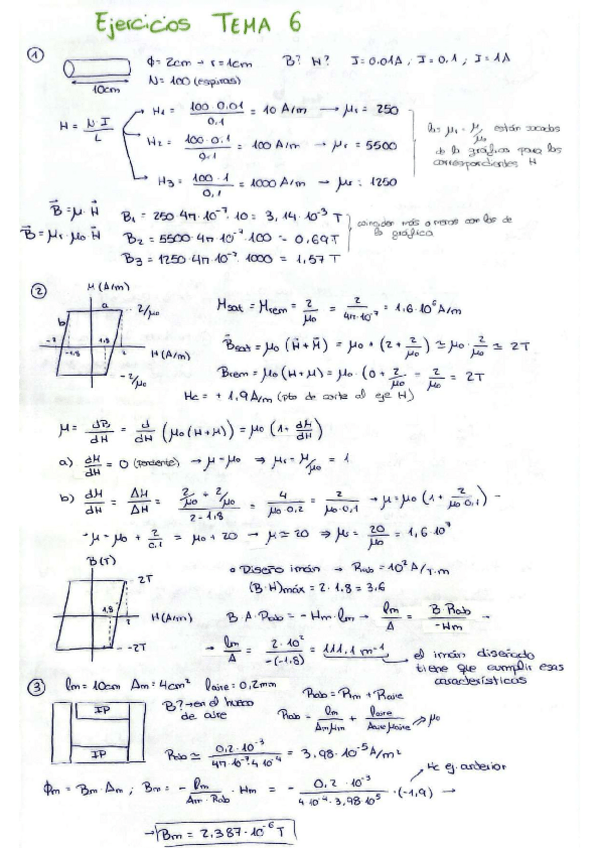 Ejercicios TEMA 6
① ϕ = 2cm → r = 1cm B? H? I = 0.01A, I = 0,1, I = 1A
10cm N = 100 (espiras)
H = N·I / L
H₁ = 100·0.01 / 0.1 = 10 A/m → μr = 250
H₂ = 100·0.1 / 0.1 = 100 A/m → μr = 5500
H₃ = 100·1 / 0,1 = 1000 A/m → μr = 1250
las μr = μ/μ₀ están sacadas
de la gráfica para los
correspondientes H
B = μ·H B₁ = 250·4π·10⁻⁷·10 = 3,14·10⁻³ T
B = μr·μ₀ H B₂ = 5500·4π·10⁻⁷·100 = 0,69T
B₃ = 1250·4π·10⁻⁷·1000 = 1,57T
más o menos con los de
la gráfica
② M (A/m)
a 2/μ₀
b
-2 -1,8 1,8 2 H(A/m)
-2/μ₀
Msat = Mrem = 2/μ₀ = 2 / 4π·10⁻⁷ = 1,6·10⁶ A/m
Bsat = μ₀ (H+M) = μ₀ · (2 + 2/μ₀) ≃ μ₀ · 2/μ₀ ≃ 2T
Brem = μ₀(H+M) = μ₀·(0 + 2/μ₀) = 2/μ₀ = 2T
Hc = ± 1,9 A/m (pto de corte al eje H)
μ = dB/dH = d/dH (μ₀(H+M)) = μ₀ (1 + dM/dH)
a) dM/dH = 0 (pendiente) → μ = μ₀ ⇒ μr = μ/μ₀ = 1
b) dM/dH = ΔM/ΔH = 2/μ₀ + 2/μ₀ / 2-1,8 = 4 / μ₀·0,2 = 2 / μ₀·0,1 → μ = μ₀ (1 + 2/μ₀0,1) -
- μ = μ₀ + 2/0,1 = μ₀ + 20 → μ ≃ 20 ⇒ μr = 20/μ₀ = 1,6·10⁷
B(T)
2T
1,8 2 H(A/m)
-2T
Diseño imán → Rab = 10² A/T·m
(B·H)máx = 2·1,8 = 3,6
B·A·Rab = -Hm·lm → lm/A = B Rab / -Hm -
→ lm/A = 2·10² / -(-1,8) = 111,1 m⁻¹
el imán diseñado
tiene que cumplir esas
características
③ lm = 10cm Am = 4cm² laire = 0,2mm
IP
IP
B? → en el hueco
de aire
Rab = Rm + Raire
Rab = lm / Am μm + laire / Aaire μaire → μ₀
Rab ≃ 0,2·10⁻³ / 4π·10⁻⁷·4·10⁻⁴ = 3,98·10⁻⁵ A/m²
Hc ej. anterior
ϕm = Bm·Am ; Bm = - lm / Am·Rab · Hm = - 0,2·10⁻³ / 4·10⁻⁴·3,98·10⁵ · (-1,9) →
→ Bm = 2,387·10⁻⁶ T